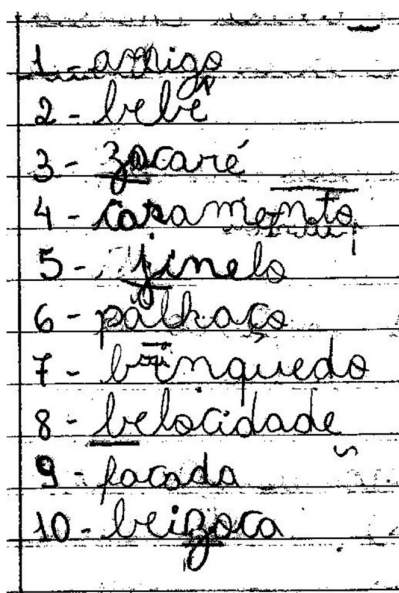 1 - amigo
2 - bebê
3 - zacaré
4 - casamento
5 - jinelo
6 - palhaço
7 - brinquedo
8 - belocidade
9 - facada
10 - beizoca